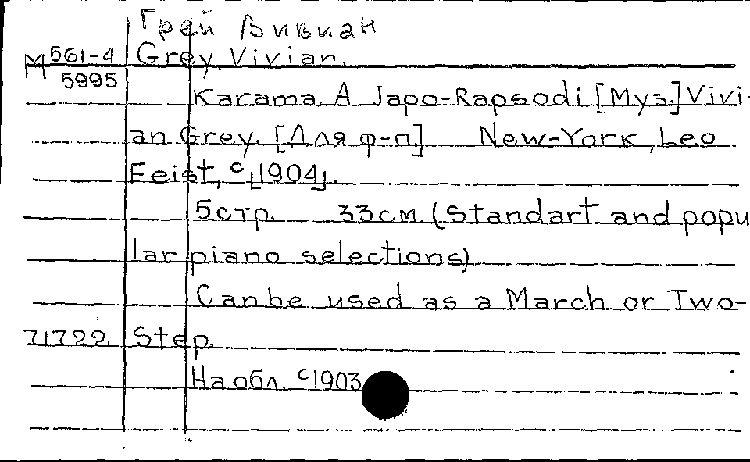 Грей Вивиан
М 561-4 Grey, Vivian.
5995
Karama. A Japo-Rapsodi [Муз.] Vivi-
an Grey. [Для ф-п] New-York, Leo
Feist, c[1904].
5стр. 33см. (Standart and popu
lar piano selections)
Can be used as a March or Two-
71722 Step.
На обл. c1903